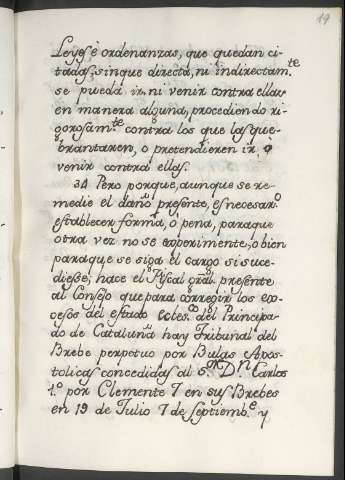 19
Leyes è ordenanzas, que quedan ci-
tadas, sinque directa, ni indirectam.te
se pueda ir, ni venir contra ellas
en manera alguna, procediendo ri-
gorosam.te contra los que las que-
brantaren, o pretendieren ir, ò
venir contra ellas.
34 Pero porque, aunque se re-
medie el daño presente, es necesar.o
establecer forma, ò pena, paraque
otra vez no se experimente, o bien
paraque se siga el cargo si suce-
diesse; hace el Fiscal gral. presente
al Consejo que para corregir los ex-
cesos del estado ecles.co del Principa-
do de Cataluña hay Tribunal del
Brebe perpetuo por Bulas Apos-
tolicas concedidas al S.or D.n Carlos
1.o por Clemente 7 en sus Brebes
en 19 de Julio 7 de septiemb.e y